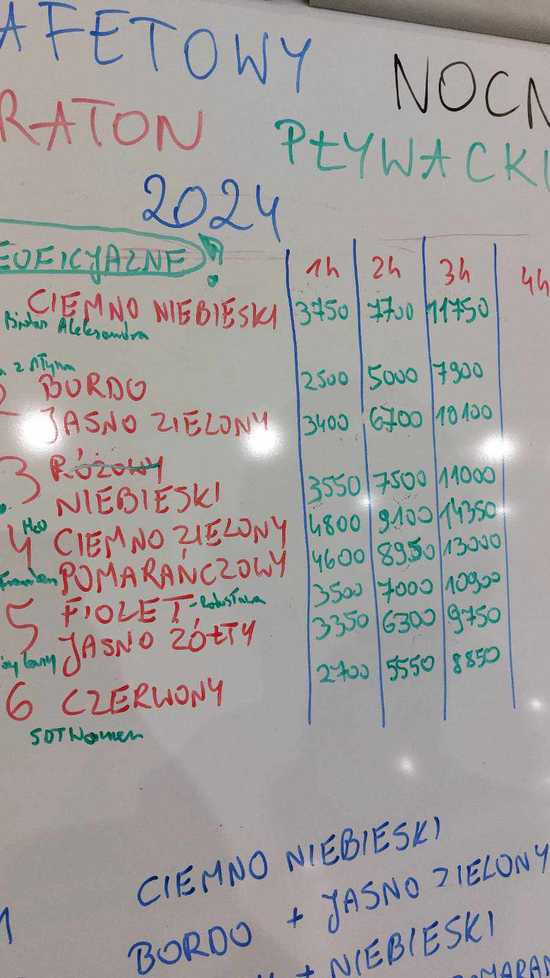 AFETOWY
NOCN
RATON
PŁYWACKI
2024
EOFICJALNE!
1h 2h 3h 4h
CIEMNO NIEBIESKI 3750 7700 11750
Aleksandra
BORDO 2500 5000 7900
2 JASNO ZIELONY 3400 6700 10100
3 RÓŻOWY
NIEBIESKI 3550 7500 11000
H2O
4 CIEMNO ZIELONY 4800 9100 14350
POMARAŃCZOWY 4600 8950 13000
5 FIOLET - 3500 7000 10900
JASNO ŻÓŁTY 3350 6300 9750
6 CZERWONY 2700 5550 8850
SOT Women
CIEMNO NIEBIESKI
1 BORDO + JASNO ZIELONY
+ NIEBIESKI
POMARAN